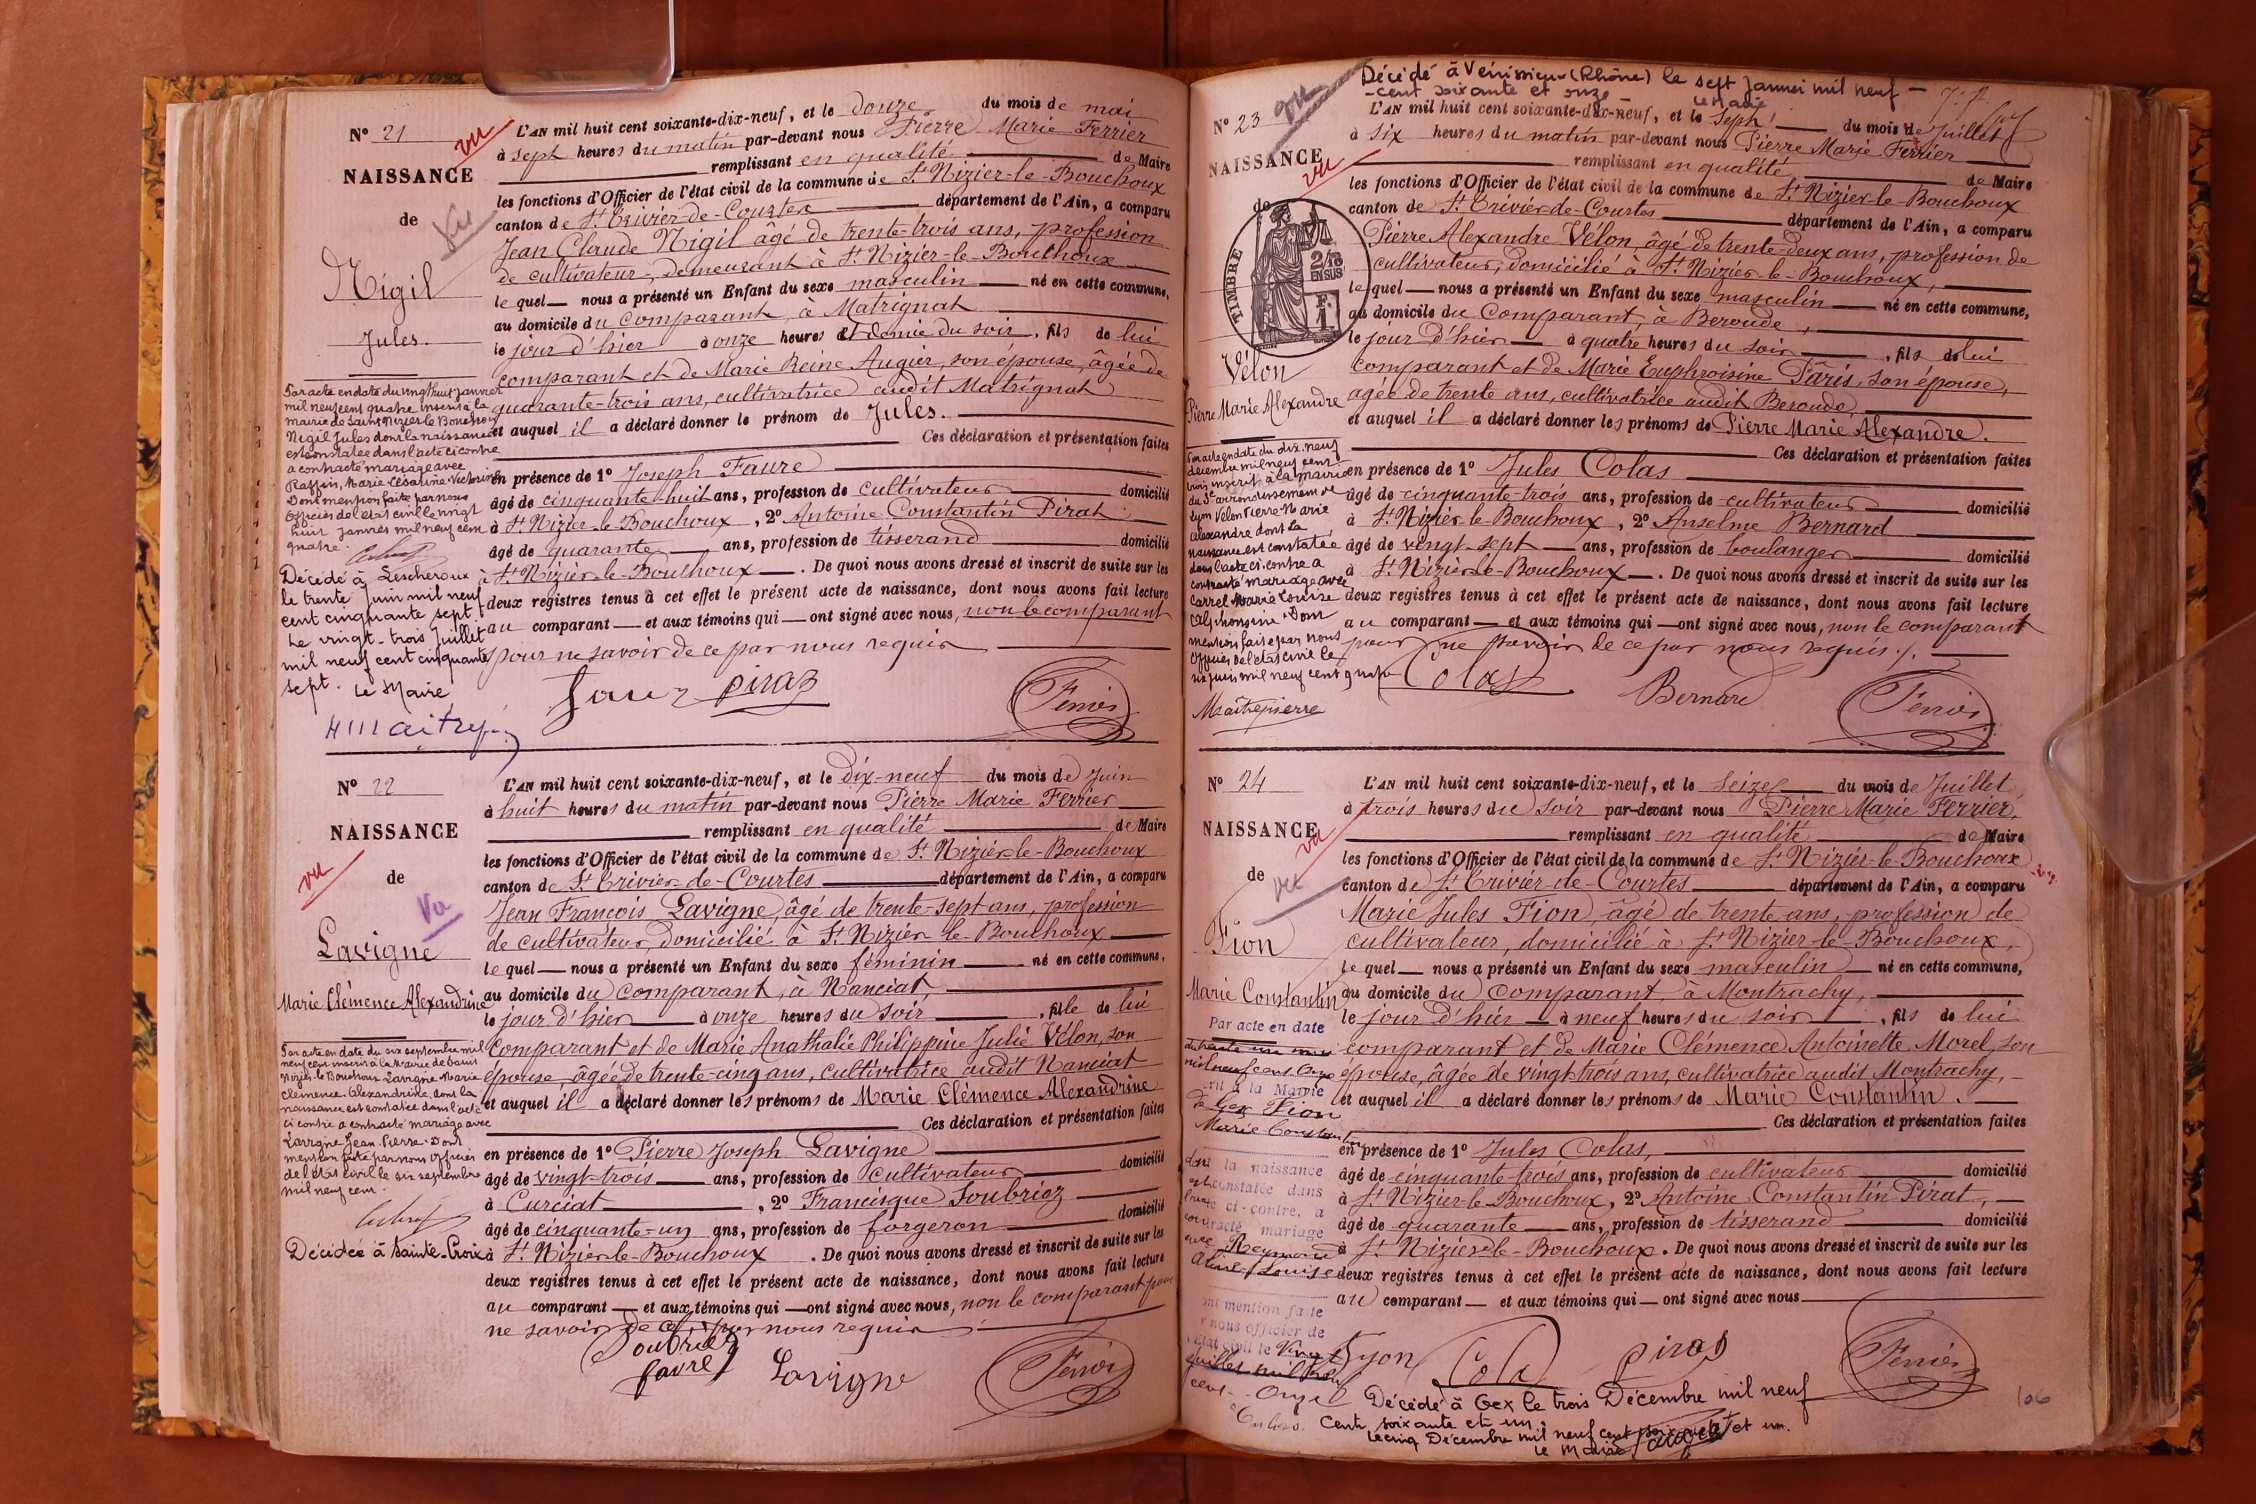 N° 21
NAISSANCE
de
Nigil
Jules.
vu
Vu
L'AN mil huit cent soixante-dix-neuf, et le douze du mois de mai
à sept heures du matin par-devant nous Pierre Marie Ferrier
remplissant en qualité de Maire
les fonctions d'Officier de l'état civil de la commune de St Nizier-le-Bouchoux
canton de St Trivier-de-Courtes département de l'Ain, a comparu
Jean Claude Nigil âgé de trente-trois ans, profession
de cultivateur, demeurant à St Nizier-le-Bouchoux
le quel nous a présenté un Enfant du sexe masculin né en cette commune,
au domicile du comparant, à Matrignat
le jour d'hier à onze heures et demie du soir, fils de lui
comparant et de Marie Reine Augier, son épouse, âgée de
quarante-trois ans, cultivatrice audit Matrignat
et auquel il a déclaré donner le prénom de Jules.
Ces déclaration et présentation faites
en présence de 1° Joseph Faure
âgé de cinquante huit ans, profession de cultivateur domicilié
à St Nizier-le-Bouchoux, 2° Antoine Constantin Pirat
âgé de quarante ans, profession de tisserand domicilié
à St Nizier-le-Bouchoux. De quoi nous avons dressé et inscrit de suite sur les
deux registres tenus à cet effet le présent acte de naissance, dont nous avons fait lecture
au comparant et aux témoins qui ont signé avec nous, non le comparant
pour ne savoir de ce par nous requis
Faure Piraz Ferrier
Par acte en date du vingt huit janvier
mil neuf cent quatre inscrit à la
mairie de Saint Nizier-le Bouchoux
Nigil Jules dont la naissance
est constatée dans l'acte ci contre
a contracté mariage avec
Raffin, Marie Césarine Victorine
Dont mention faite par nous
Officier de l'état civil le vingt
huit janvier mil neuf cent
quatre.
Décédé à Lescheroux
le trente Juin mil neuf
cent cinquante sept.
Le vingt-trois Juillet
mil neuf cent cinquante
sept. Le Maire
N° 22
NAISSANCE
de
vu
Vu
Lavigne
Marie Clémence Alexandrine
L'AN mil huit cent soixante-dix-neuf, et le dix-neuf du mois de Juin
à huit heures du matin par-devant nous Pierre Marie Ferrier
remplissant en qualité de Maire
les fonctions d'Officier de l'état civil de la commune de St Nizier-le-Bouchoux
canton de St Trivier-de-Courtes département de l'Ain, a comparu
Jean François Lavigne, âgé de trente-sept ans, profession
de cultivateur, domicilié à St Nizier le Bouchoux
le quel nous a présenté un Enfant du sexe féminin né en cette commune,
au domicile du comparant, à Nanciat,
le jour d'hier à onze heures du soir, fille de lui
comparant et de Marie Anathalie Philippine Julie Vélon, son
épouse, âgée de trente-cinq ans, cultivatrice audit Nanciat
et auquel il a déclaré donner les prénoms de Marie Clémence Alexandrine
Ces déclaration et présentation faites
en présence de 1° Pierre Joseph Lavigne
âgé de vingt-trois ans, profession de cultivateur domicilié
à Curciat, 2° Francisque Soubriez
âgé de cinquante-un ans, profession de forgeron domicilié
à St Nizier-le-Bouchoux. De quoi nous avons dressé et inscrit de suite sur les
deux registres tenus à cet effet le présent acte de naissance, dont nous avons fait lecture
au comparant et aux témoins qui ont signé avec nous, non le comparant pour
ne savoir de ce par nous requis
Soubriez
Lavigne Ferrier
Par acte en date du six septembre mil
neuf cent inscrit à la Mairie de Saint
Nizier-le Bouchoux Lavigne Marie
Clémence Alexandrine, dont la
naissance est constatée dans l'acte
ci contre a contracté mariage avec
Lavigne Jean Pierre. Dont
mention faite par nous Officier
de l'état civil le six septembre
mil neuf cent.
Décédée à Sainte-Croix
Décédé à Vénissieux (Rhône) le sept Janvier mil neuf
-cent soixante et onze
Le Maire
N° 23
NAISSANCE
de
vu
TIMBRE
2/10
EN SUS
F.
1
Vélon
Pierre Marie Alexandre
L'AN mil huit cent soixante-dix-neuf, et le sept du mois de Juillet
à six heures du matin par-devant nous Pierre Marie Ferrier
remplissant en qualité de Maire
les fonctions d'Officier de l'état civil de la commune de St Nizier-le-Bouchoux
canton de St Trivier-de-Courtes département de l'Ain, a comparu
Pierre Alexandre Vélon, âgé de trente-deux ans, profession de
cultivateur, domicilié à St Nizier-le-Bouchoux,
le quel nous a présenté un Enfant du sexe masculin né en cette commune,
au domicile du comparant, à Beroude,
le jour d'hier à quatre heures du soir, fils de lui
comparant et de Marie Euphroisine Pâris, son épouse,
agée de trente ans, cultivatrice audit Beroude,
et auquel il a déclaré donner les prénoms de Pierre Marie Alexandre.
Ces déclaration et présentation faites
en présence de 1° Jules Colas
âgé de cinquante-trois ans, profession de cultivateur domicilié
à St Nizier-le-Bouchoux, 2° Anselme Bernard
âgé de vingt-sept ans, profession de boulanger domicilié
à St Nizier-le-Bouchoux. De quoi nous avons dressé et inscrit de suite sur les
deux registres tenus à cet effet le présent acte de naissance, dont nous avons fait lecture
au comparant et aux témoins qui ont signé avec nous, non le comparant
pour ne savoir de ce par nous requis.
Colas Bernard Ferrier
Par acte en date du dix-neuf
décembre mil neuf cent
trois inscrit à la mairie
du 3e arrondissement de
Lyon Vélon Pierre-Marie
Alexandre dont la
naissance est constatée
dans l'acte ci-contre a
contracté mariage avec
Carrel Marie Louise
Alphonsine. Dont
mention faite par nous
Officier de l'état civil le
six juin mil neuf cent quatre
Maîtrepierre
N° 24
NAISSANCE
de
vu
vu
Fion
Marie Constantin
L'AN mil huit cent soixante-dix-neuf, et le seize du mois de Juillet
à trois heures du soir par-devant nous Pierre Marie Ferrier,
remplissant en qualité de Maire
les fonctions d'Officier de l'état civil de la commune de St Nizier-le-Bouchoux
canton de St Trivier-de-Courtes département de l'Ain, a comparu
Marie Jules Fion, âgé de trente ans, profession de
cultivateur, domicilié à St Nizier-le-Bouchoux,
le quel nous a présenté un Enfant du sexe masculin né en cette commune,
au domicile du comparant, à Montrachy,
le jour d'hier à neuf heures du soir, fils de lui
comparant et de Marie Clémence Antoinette Morel, son
épouse, âgée de vingt-trois ans, cultivatrice audit Montrachy,
et auquel il a déclaré donner les prénoms de Marie Constantin.
Ces déclaration et présentation faites
en présence de 1° Jules Colas,
âgé de cinquante-trois ans, profession de cultivateur domicilié
à St Nizier-le-Bouchoux, 2° Antoine Constantin Pirat,
âgé de quarante ans, profession de tisserand domicilié
à St Nizier-le-Bouchoux. De quoi nous avons dressé et inscrit de suite sur les
deux registres tenus à cet effet le présent acte de naissance, dont nous avons fait lecture
au comparant et aux témoins qui ont signé avec nous
Fyon Cola Piraz Ferrier
Par acte en date
du trente un mai
mil neuf cent onze
crit à la Mairie
de Gex Fion
Marie Constantin
dont la naissance
est constatée dans
l'acte ci-contre, a
contracté mariage
avec Reymond
Aline Louise
ont mention faite
r nous officier de
l'état civil le
juillet mil neuf
cent onze
Décédé à Gex le trois Décembre mil neuf
cent soixante et un.
Le cinq Décembre mil neuf cent soixante et un.
Le Maire
106